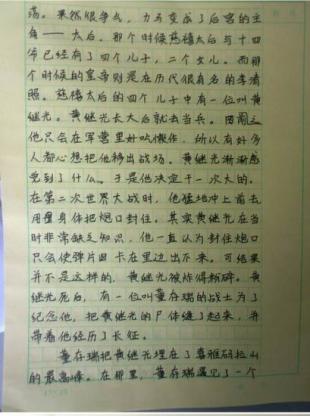 荡。果然很争气，力马变成了后宫的主
角——太后。那个时候慈禧太后与十四
爷已经有了四个儿子，二个女儿。而那
个时候的皇帝则是在历代很有名的李清
照。慈禧太后的四个儿子中有一位叫黄
继光。黄继光长大后就去当兵。因
他只会在军营里好吃懒作，所以有好多
人都心想把他移出战场。黄继光渐渐感
觉到了什么。于是他决定干一次大的。
在第二次世界大战时，他猛地冲上前去
用自身体把炮口封住。其实黄继光在当
时非常缺乏知识，他一直认为封住炮口
只会使弹片卡在里边出不来。可结果
并不是这样的，黄继光被炸得粉碎。黄
继光死后，有一位叫董存瑞的战士为了
纪念他，把黄继光的尸体缝了起来，并
带着他经历了长征。
董存瑞把黄继光埋在了喜雅码拉山
的最高峰。在那里，董存瑞遇见了一个